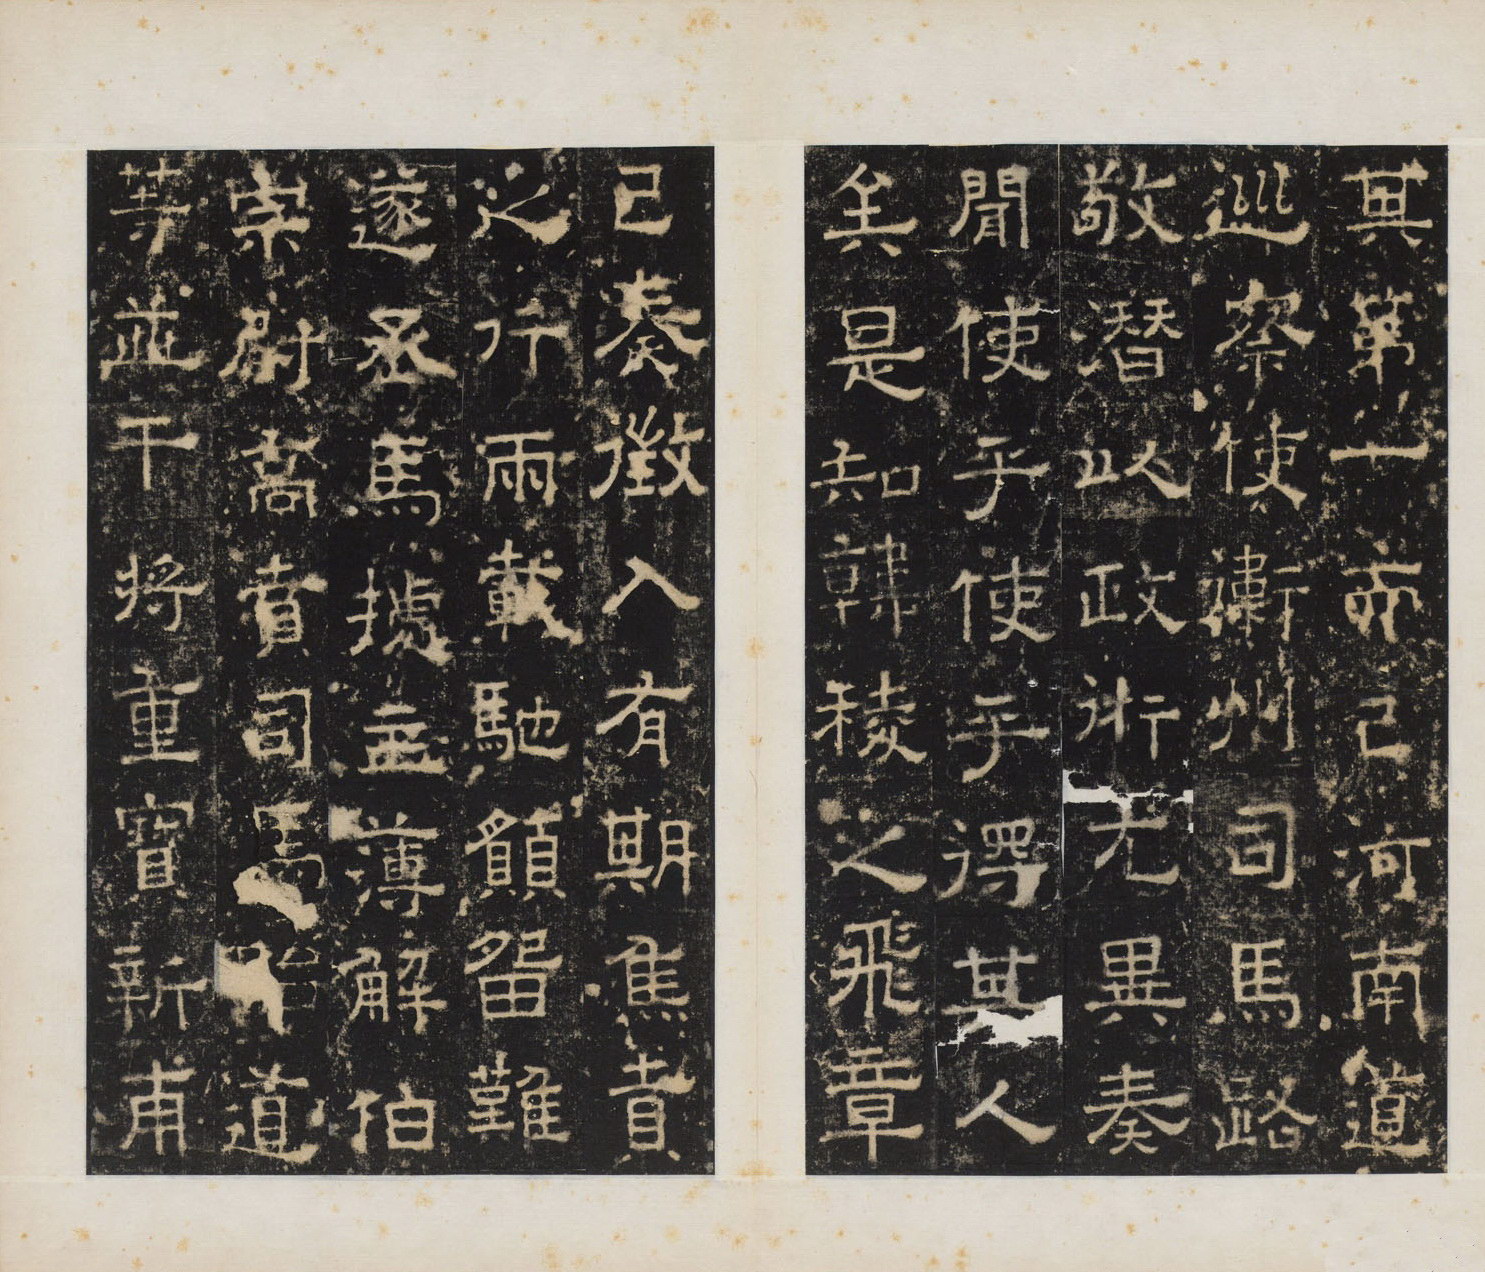 其第一而已河南道
巡察使衛州司馬路
敬潛以政術尤異奏
聞使乎使乎得其人
矣是知韓稜之飛章
已奏徵入有期焦貢
之行雨載馳顧留難
遂丞馬攄主薄解伯
崇尉葛賁司馬道
等並干將重寶新甫